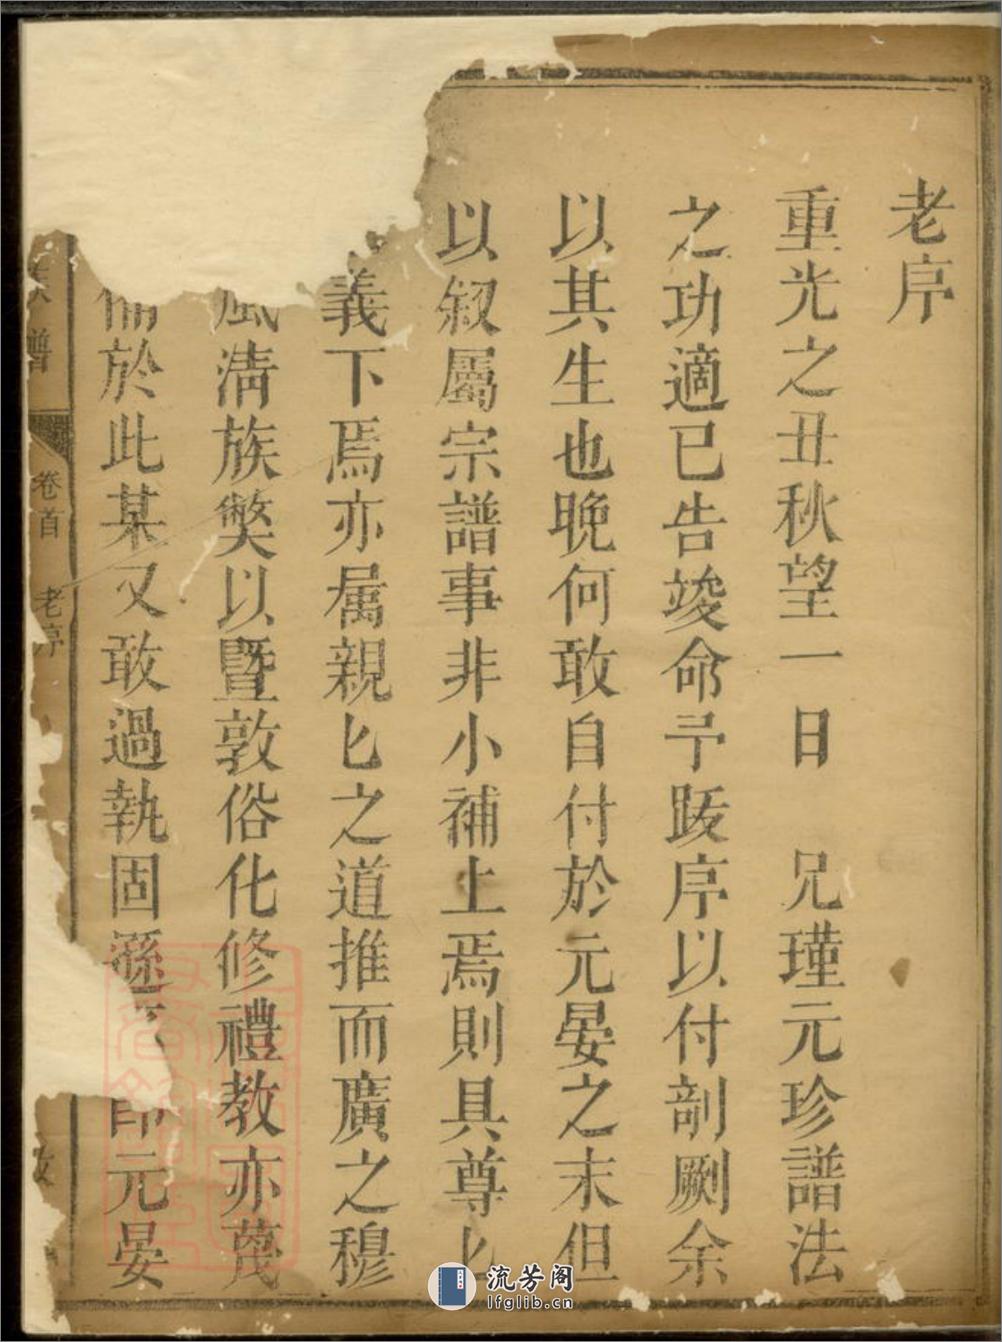 老序
重光之丑秋望一日 兄瑾元珍譜法
之功適已告竣命予䟦序以付剞劂余
以其生也晚何敢自付於元晏之末但
以叙屬宗譜事非小補上焉則具尊匕
義下焉亦属親匕之道推而廣之穆
風淸族獘以曁敦俗化修禮教亦蔑
備於此某又敢過執固遜 元晏
譜
卷首
老序
流芳阁
lfglib.cn